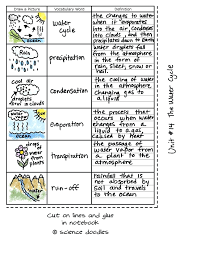 Draw a Picture
Vocabulary Word
Definition
water
cycle
the changes to water
when it evaporates
into the air, condenses
into clouds, and then
precipitates down to Earth
precipitation
water droplets fall
from the atmosphere
in the form of
rain, sleet, snow or
hail.
cool air
droplets
form a clouds
Condensation
the cooling of water
in the atmosphere
changing gas to
a liquid
evaporation
the process that
occurs when water
changes from a
liquid to a gas,
caused by heat
drops
water
from
plants
Transpiration
the passage of
water vapor from
a plant to the
atmosphere
water
run-off
rainfall that is
not absorbed by
soil and travels
to the ocean
Cut on lines and glue
in notebook
© science doodles
Unit #14 The Water Cycle